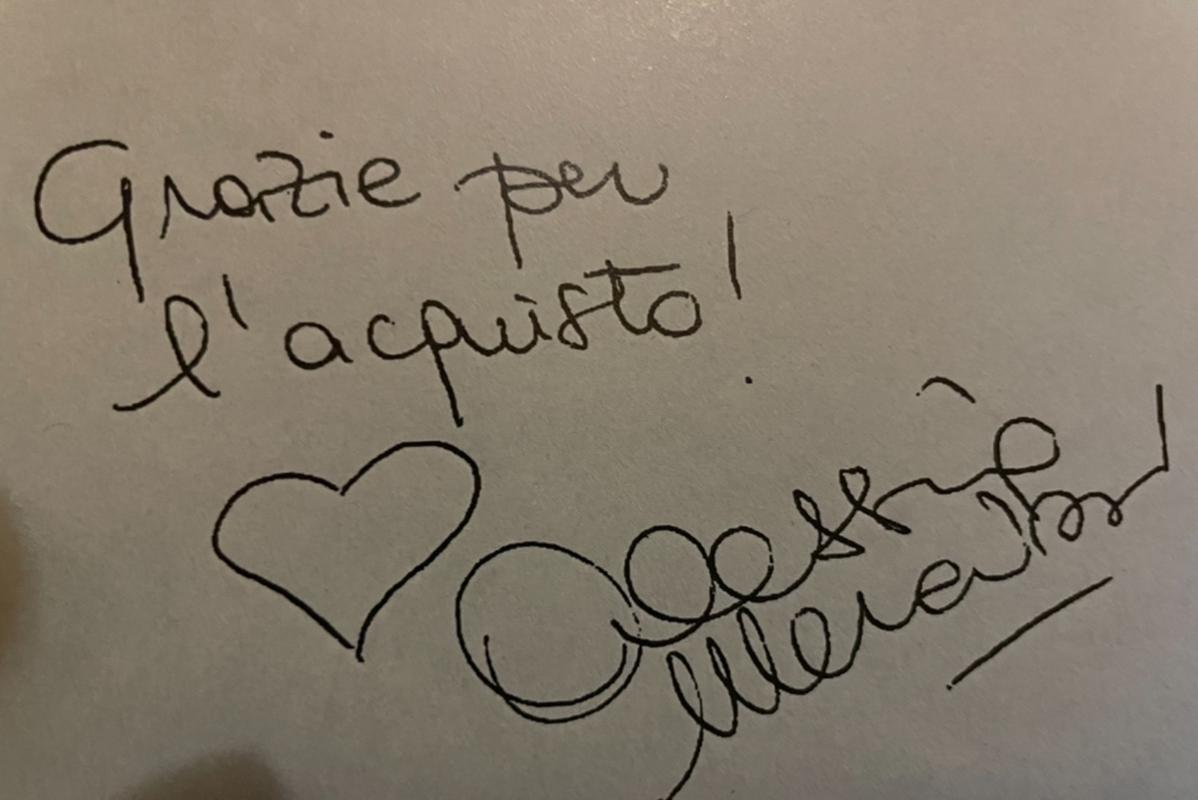 Grazie per
l'acquisto!